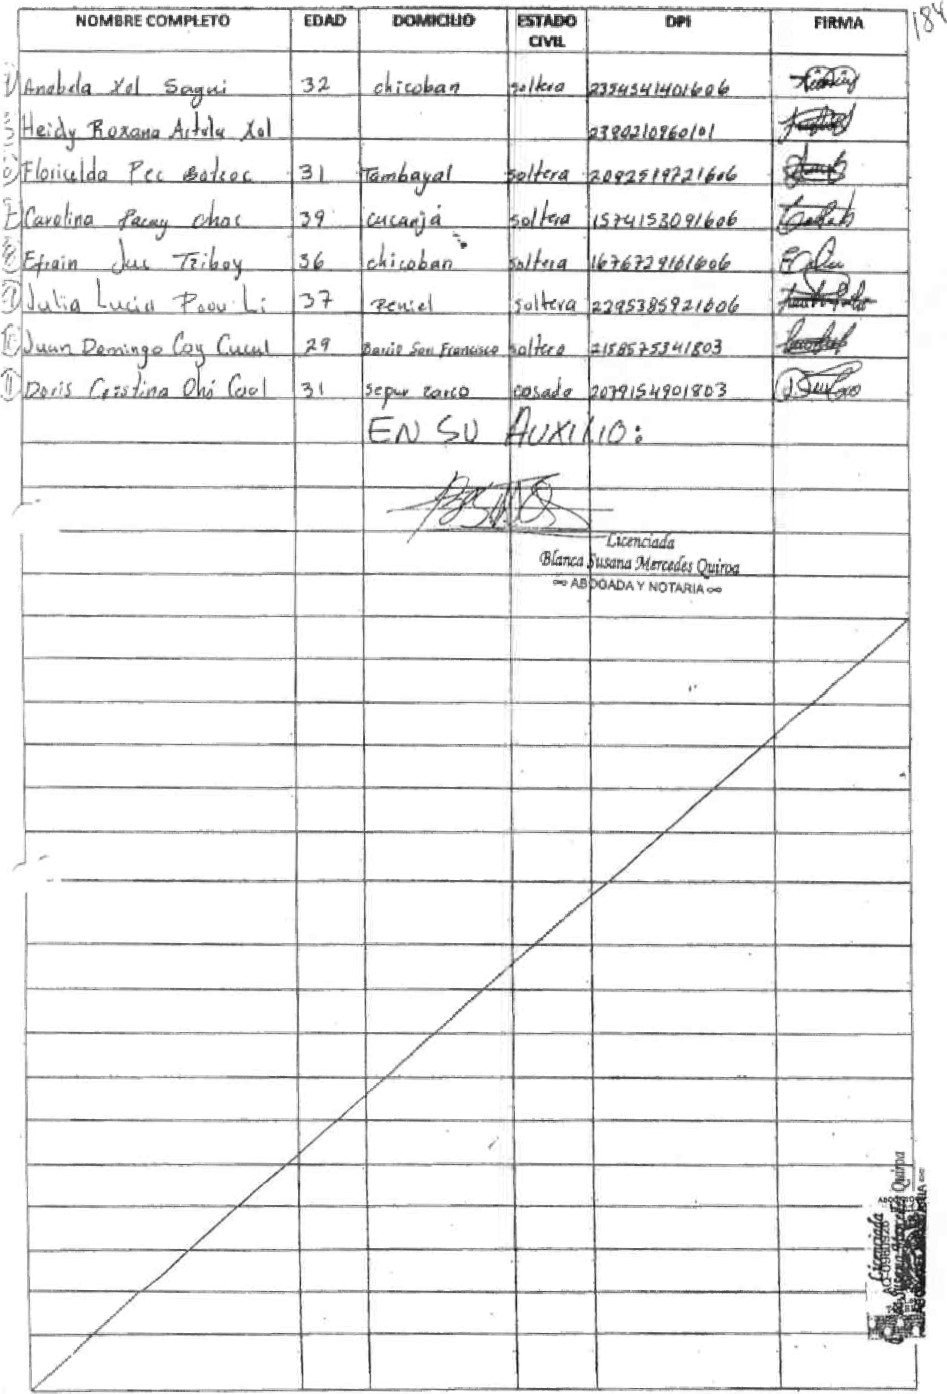 184
NOMBRE COMPLETO EDAD DOMICILIO ESTADO CIVIL DPI FIRMA
Anabela Xol Sagui 32 chicoban soltera 2354541401606
Heidy Roxana Artola Xol 2390210960101
Floricelda Pec 31 Tambayal soltera 2092519721606
Carolina Pacay chac 39 cucanjá soltera 1574153091606
8 Efrain Juc Triboy 36 chicoban soltera 1676729161606
Julia Lucia Poou Li 37 Peniel soltera 2295385921606
10 Juan Domingo Coy Cucul 29 Barrio San Francisco soltero 2158575341803
11 Doris Cristina Chi Caal 31 sepur zarco casada 2079154901803
EN SU AUXILIO:
Licenciada
Blanca Susana Mercedes Quiroa
ABOGADA Y NOTARIA
Licenciada
Quiroa